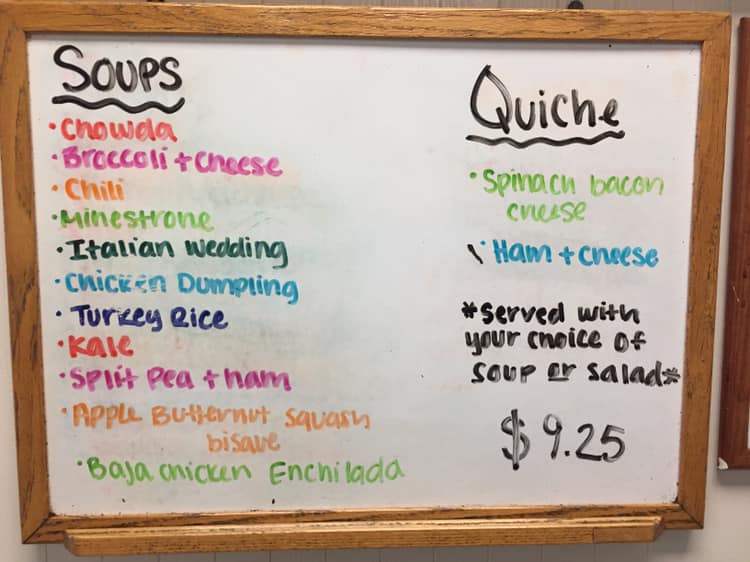 Soups
· Chowda
· Broccoli + cheese
· Chili
· Minestrone
· Italian wedding
· Chicken Dumpling
· Turkey Rice
· Kale
· Split Pea + ham
· Apple Butternut squash
bisque
· Baja chicken Enchilada
Quiche
· Spinach bacon
cheese
· Ham + cheese
*Served with
your choice of
soup or salad*
$9.25